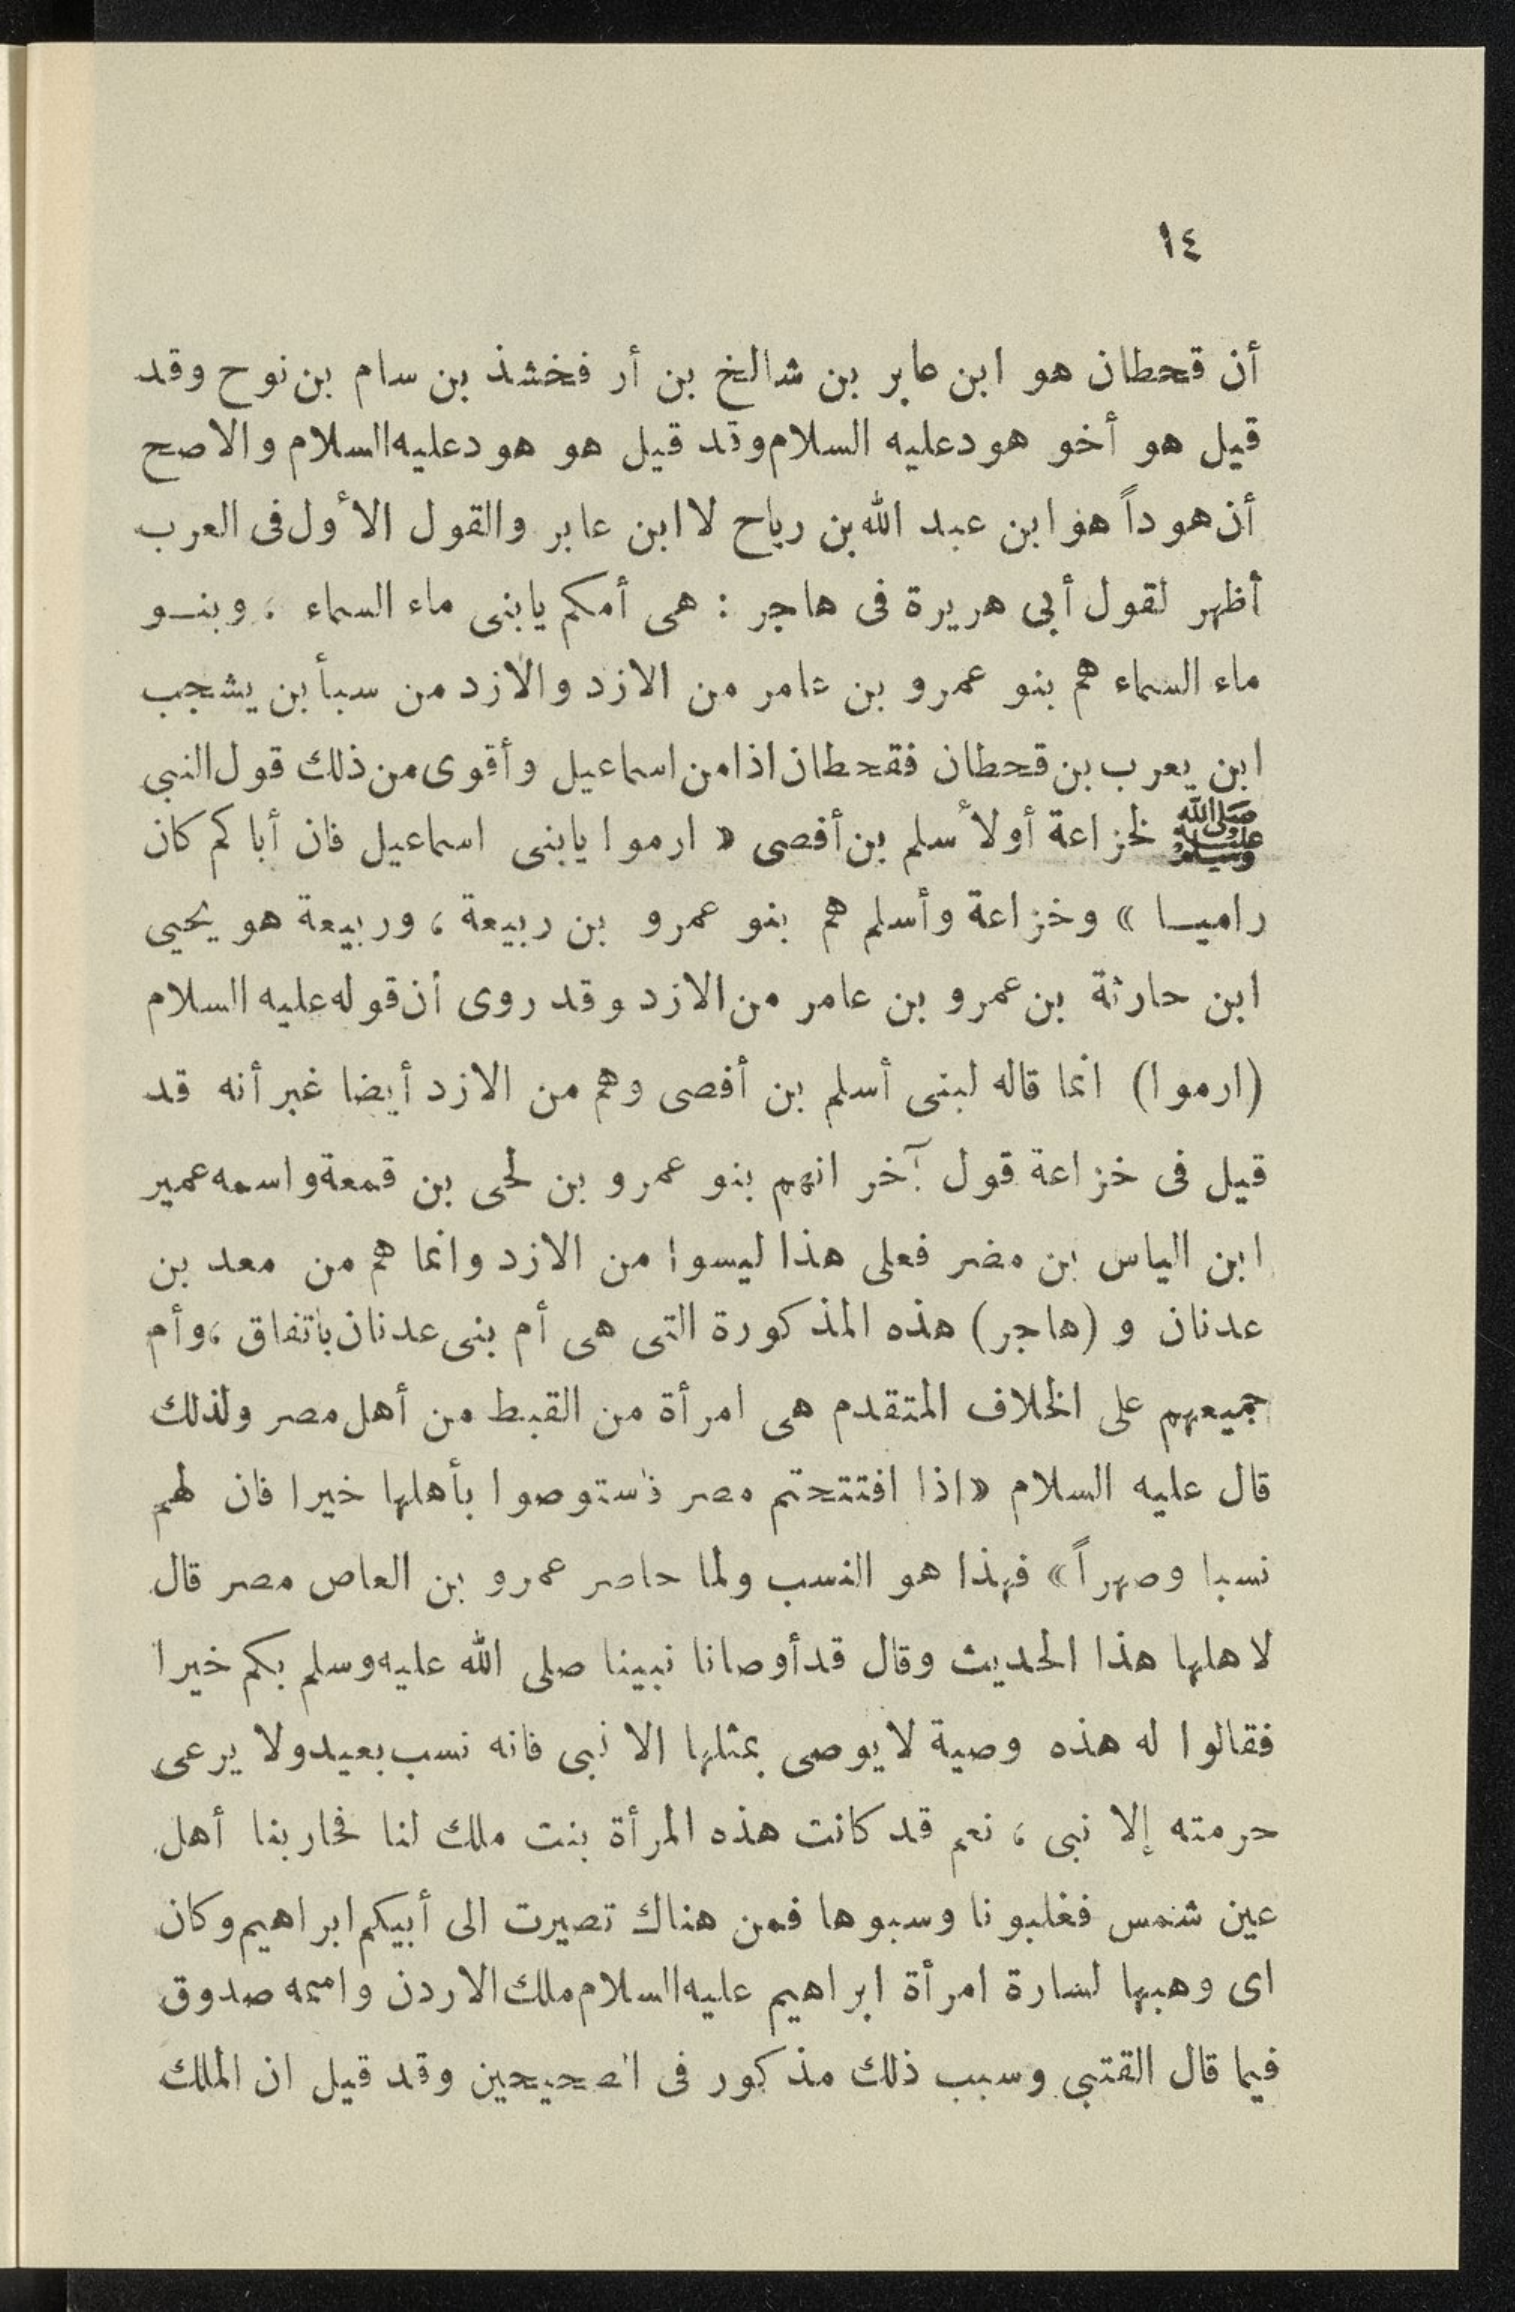 ١٤
أن قحطان هو ابن عابر بن شالخ بن أر فخشذ بن سام بن نوح وقد
قيل هو أخو هود عليه السلام وقد قيل هو هود عليه السلام والاصح
أن هوداً هو ابن عبد الله بن رباح لا ابن عابر والقول الأول فى العرب
أظهر لقول أبى هريرة فى هاجر : هى أمكم يابنى ماء السماء ، وبنـو
ماء السماء هم بنو عمرو بن عامر من الازد والازد من سبأ بن يشجب
ابن يعرب بن قحطان فقحطان اذا من اسماعيل وأقوى من ذلك قول النبى
ﷺ لخزاعة أولأ سلم بن أفصى « ارموا يابنى اسماعيل فان أباكم كان
راميـا » وخزاعة وأسلم هم بنو عمرو بن ربيعة ، وربيعة هو يحيى
ابن حارثة بن عمرو بن عامر من الازد وقد روى أن قوله عليه السلام
(ارموا) انما قاله لبنى أسلم بن أفصى وهم من الازد أيضا غير أنه قد
قيل فى خزاعة قول آخر انهم بنو عمرو بن لحى بن قمعة واسمه عمير
ابن الياس بن مضر فعلى هذا ليسوا من الازد وانما هم من معد بن
عدنان و (هاجر) هذه المذكورة التى هى أم بنى عدنان باتفاق ، وأم
جميعهم على الخلاف المتقدم هى امرأة من القبط من أهل مصر ولذلك
قال عليه السلام «اذا افتتحتم مصر فاستوصوا بأهلها خيرا فان لهم
نسبا وصهراً» فهذا هو النسب ولما حاصر عمرو بن العاص مصر قال
لاهلها هذا الحديث وقال قد أوصانا نبينا صلى الله عليه وسلم بكم خيرا
فقالوا له هذه وصية لا يوصى بمثلها الا نبى فانه نسب بعيد ولا يرعى
حرمته إلا نبى ، نعم قد كانت هذه المرأة بنت ملك لنا فحاربنا أهل
عين شمس فغلبونا وسبوها فمن هناك تصيرت الى أبيكم ابراهيم وكان
اى وهبها لسارة امرأة ابراهيم عليه السلام ملك الاردن واسمه صدوق
فيما قال القتبى وسبب ذلك مذكور فى الصحيحين وقد قيل ان الملك